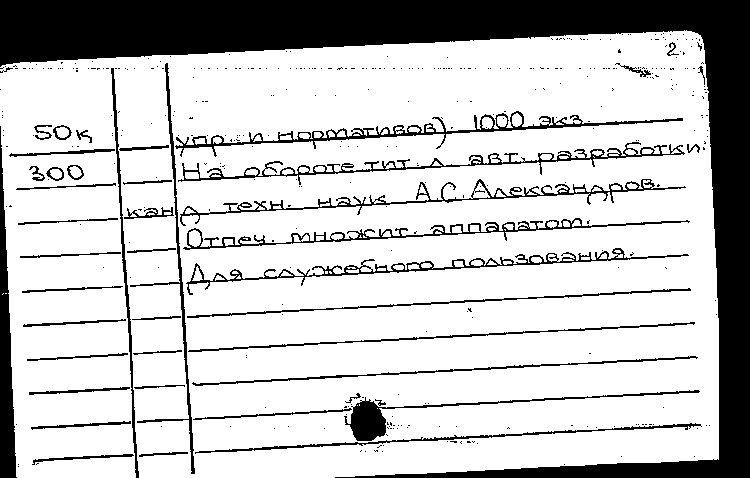 2.
50к упр. и нормативов). 1000 экз.
300 На обороте тит. л. авт. разработки:
канд. техн. наук А.С. Александров.
Отпеч. множит. аппаратом.
Для служебного пользования.